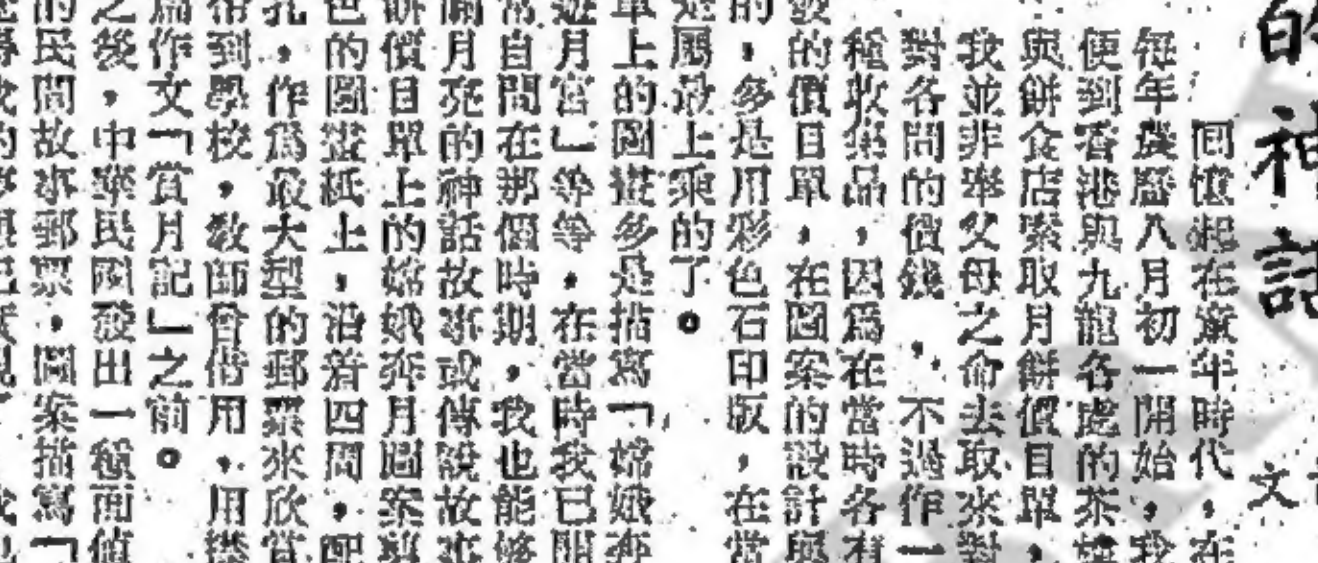 的神話
文
回憶起在童年時代，在
每年農曆八月初一開始，我
便到香港與九龍各處的茶樓
與餅食店索取月餅價目單，
我並非奉父母之命去取來對
對各間的價錢，不過作一
種收集品，因爲在當時各有
的價目單，在圖案的設計與
的，多是用彩色石印版，在當
是屬最上乘的了。
單上的圖畫多是描寫「嫦娥奔
遊月宮」等等，在當時我已開
常自問在那個時期，我也能够
關月亮的神話故事或傳說故事
餅價目單上的嫦娥奔月圖案剪
色的圖畫紙上，沿着四周，配
孔，作爲最大型的郵票來欣賞
帶到學校，教師曾借用，用
爲作文「賞月記」之前。
之後，中華民國發出一種面值
的民間故事郵票，圖案描寫「